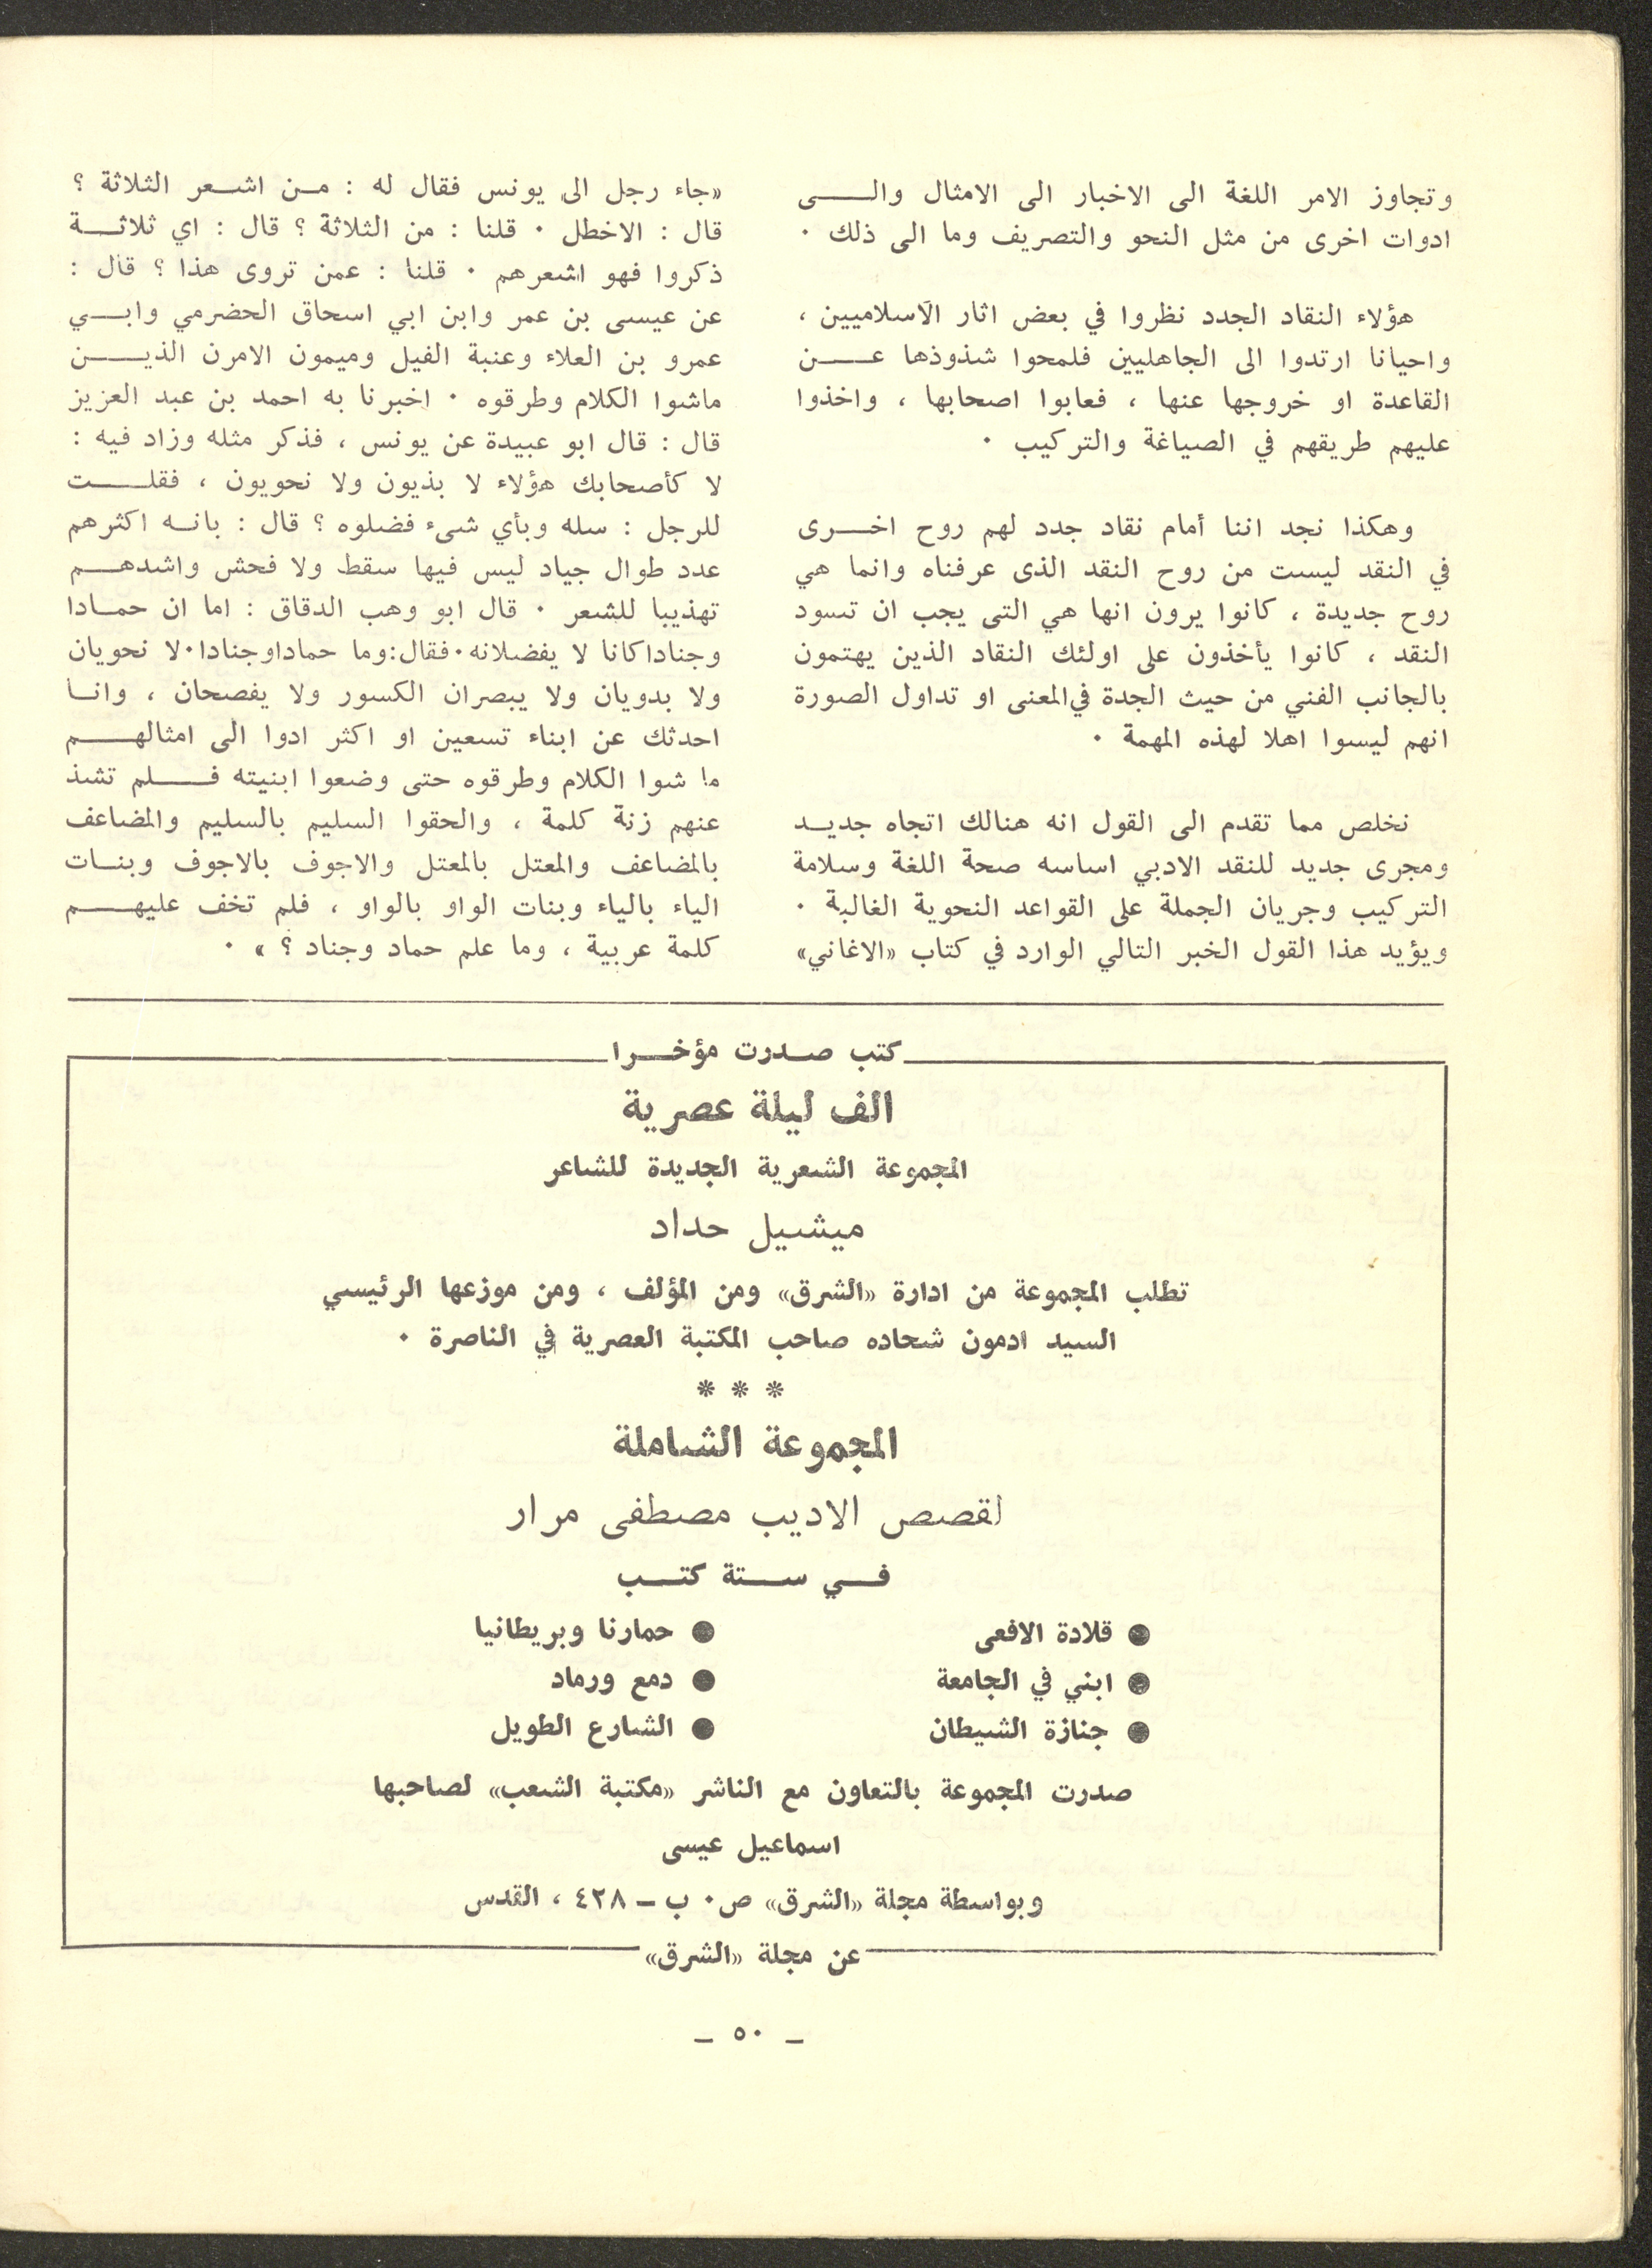 وتجاوز الامر اللغة الى الاخبار الى الامثال والى
ادوات اخرى من مثل النحو والتصريف وما الى ذلك ٠
هؤلاء النقاد الجدد نظروا في بعض اثار الاسلاميين ،
واحيانا ارتدوا الى الجاهليين فلمحوا شذوذها عن
القاعدة او خروجها عنها ، فعابوا اصحابها ، واخذوا
عليهم طريقهم في الصياغة والتركيب ٠
وهكذا نجد اننا أمام نقاد جدد لهم روح اخرى
في النقد ليست من روح النقد الذى عرفناه وانما هي
روح جديدة ، كانوا يرون انها هي التى يجب ان تسود
النقد ، كانوا يأخذون على اولئك النقاد الذين يهتمون
بالجانب الفني من حيث الجدة في المعنى او تداول الصورة
انهم ليسوا اهلا لهذه المهمة ٠
نخلص مما تقدم الى القول انه هنالك اتجاه جديد
ومجرى جديد للنقد الادبي اساسه صحة اللغة وسلامة
التركيب وجريان الجملة على القواعد النحوية الغالبة ٠
ويؤيد هذا القول الخبر التالي الوارد في كتاب «الاغاني»
«جاء رجل الى يونس فقال له : من اشعر الثلاثة ؟
قال : الاخطل ٠ قلنا : من الثلاثة ؟ قال : اي ثلاثة
ذكروا فهو اشعرهم ٠ قلنا : عمن تروى هذا ؟ قال :
عن عيسى بن عمر وابن ابي اسحاق الحضرمي وابي
عمرو بن العلاء وعنبة الفيل وميمون الامرن الذين
ماشوا الكلام وطرقوه ٠ اخبرنا به احمد بن عبد العزيز
قال : قال ابو عبيدة عن يونس ، فذكر مثله وزاد فيه :
لا كأصحابك هؤلاء لا بذيون ولا نحويون ، فقلت
للرجل : سله وبأي شىء فضلوه ؟ قال : بانه اكثرهم
عدد طوال جياد ليس فيها سقط ولا فحش واشدهم
تهذيبا للشعر ٠ قال ابو وهب الدقاق : اما ان حمادا
وجنادا كانا لا يفضلانه ٠ فقال : وما حمادا وجنادا ٠ لا نحويان
ولا بدويان ولا يبصران الكسور ولا يفصحان ، وانا
احدثك عن ابناء تسعين او اكثر ادوا الى امثالهم
ما شوا الكلام وطرقوه حتى وضعوا ابنيته فلم تشذ
عنهم زنة كلمة ، والحقوا السليم بالسليم والمضاعف
بالمضاعف والمعتل بالمعتل والاجوف بالاجوف وبنات
الياء بالياء وبنات الواو بالواو ، فلم تخف عليهم
كلمة عربية ، وما علم حماد وجناد ؟ » ٠
كتب صدرت مؤخرا
الف ليلة عصرية
المجموعة الشعرية الجديدة للشاعر
ميشيل حداد
تطلب المجموعة من ادارة «الشرق» ومن المؤلف ، ومن موزعها الرئيسي
السيد ادمون شحاده صاحب المكتبة العصرية في الناصرة ٠
* * *
المجموعة الشاملة
لقصص الاديب مصطفى مرار
في ستة كتب
● قلادة الافعى
● ابني في الجامعة
● جنازة الشيطان
● حمارنا وبريطانيا
● دمع ورماد
● الشارع الطويل
صدرت المجموعة بالتعاون مع الناشر «مكتبة الشعب» لصاحبها
اسماعيل عيسى
وبواسطة مجلة «الشرق» ص٠ ب ــ ٤٢٨ ، القدس
عن مجلة «الشرق»
ــ ٥٠ ــ